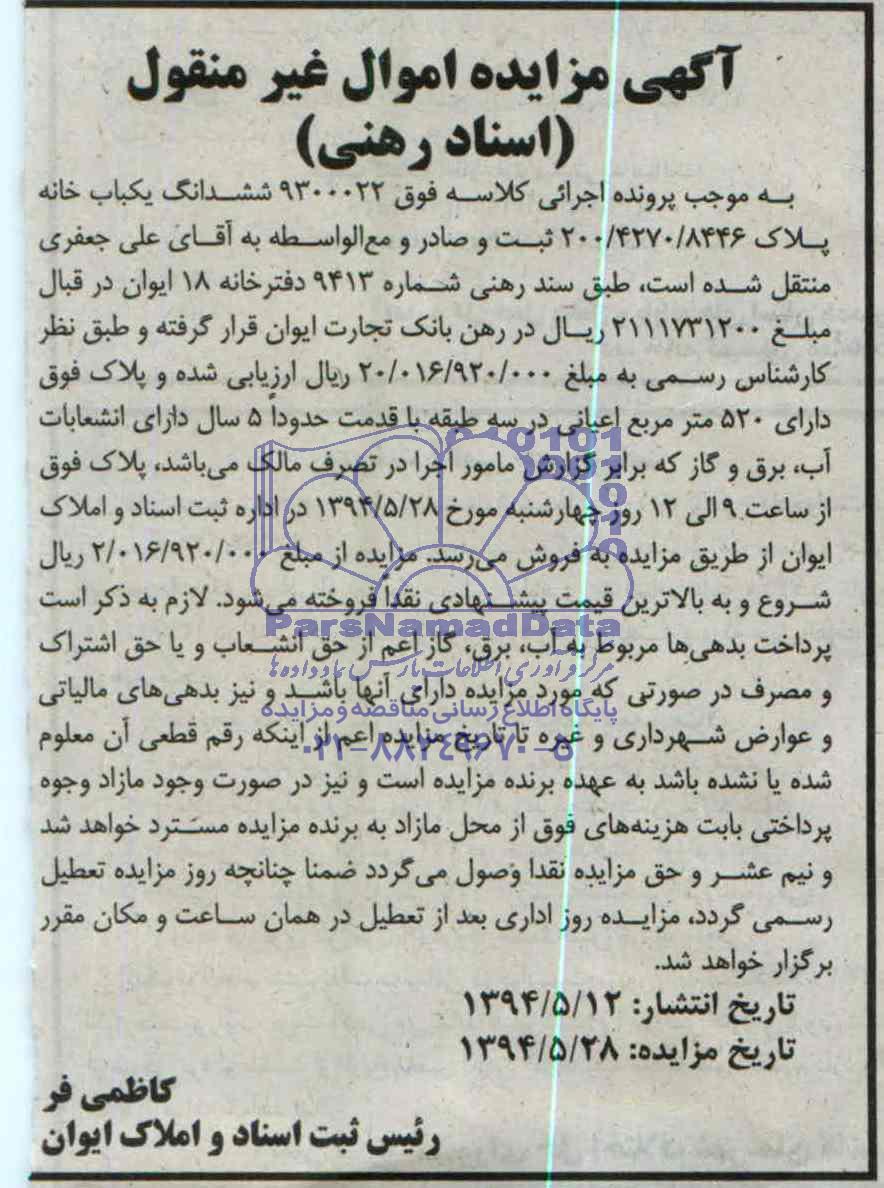 آگهی مزایده اموال غیر منقول
(اسناد رهنی)
به موجب پرونده اجرائی کلاسه فوق ۹۳۰۰۰۲۲ ششدانگ یکباب خانه
پلاک ۲۰۰/۴۲۷۰/۸۴۴۶ ثبت و صادر و مع‌الواسطه به آقای علی جعفری
منتقل شده است، طبق سند رهنی شماره ۹۴۱۳ دفترخانه ۱۸ ایوان در قبال
مبلغ ۲۱۱۱۷۳۱۲۰۰ ریال در رهن بانک تجارت ایوان قرار گرفته و طبق نظر
کارشناس رسمی به مبلغ ۲۰/۰۱۶/۹۲۰/۰۰۰ ریال ارزیابی شده و پلاک فوق
دارای ۵۲۰ متر مربع اعیانی در سه طبقه با قدمت حدوداً ۵ سال دارای انشعابات
آب، برق و گاز که برابر گزارش مامور اجرا در تصرف مالک می‌باشد، پلاک فوق
از ساعت ۹ الی ۱۲ روز چهارشنبه مورخ ۱۳۹۴/۵/۲۸ در اداره ثبت اسناد و املاک
ایوان از طریق مزایده به فروش می‌رسد. مزایده از مبلغ ۲/۰۱۶/۹۲۰/۰۰۰ ریال
شروع و به بالاترین قیمت پیشنهادی نقداً فروخته می‌شود. لازم به ذکر است
ParsNamadData
پرداخت بدهی‌ها مربوط به آب، برق، گاز اعم از حق انشعاب و یا حق اشتراک
مرکز فرآوری اطلاعات پارس نماد داده‌ها
و مصرف در صورتی که مورد مزایده دارای آنها باشد و نیز بدهی‌های مالیاتی
پایگاه اطلاع رسانی مناقصه و مزایده
و عوارض شهرداری و غیره تا تاریخ مزایده اعم از اینکه رقم قطعی آن معلوم
۰۲۱-۸۸۳۴۹۶۷۰-۵
شده یا نشده باشد به عهده برنده مزایده است و نیز در صورت وجود مازاد وجوه
پرداختی بابت هزینه‌های فوق از محل مازاد به برنده مزایده مسترد خواهد شد
و نیم عشر و حق مزایده نقدا وصول می‌گردد ضمنا چنانچه روز مزایده تعطیل
رسمی گردد، مزایده روز اداری بعد از تعطیل در همان ساعت و مکان مقرر
برگزار خواهد شد.
تاریخ انتشار: ۱۳۹۴/۵/۱۲
تاریخ مزایده: ۱۳۹۴/۵/۲۸
کاظمی فر
رئیس ثبت اسناد و املاک ایوان